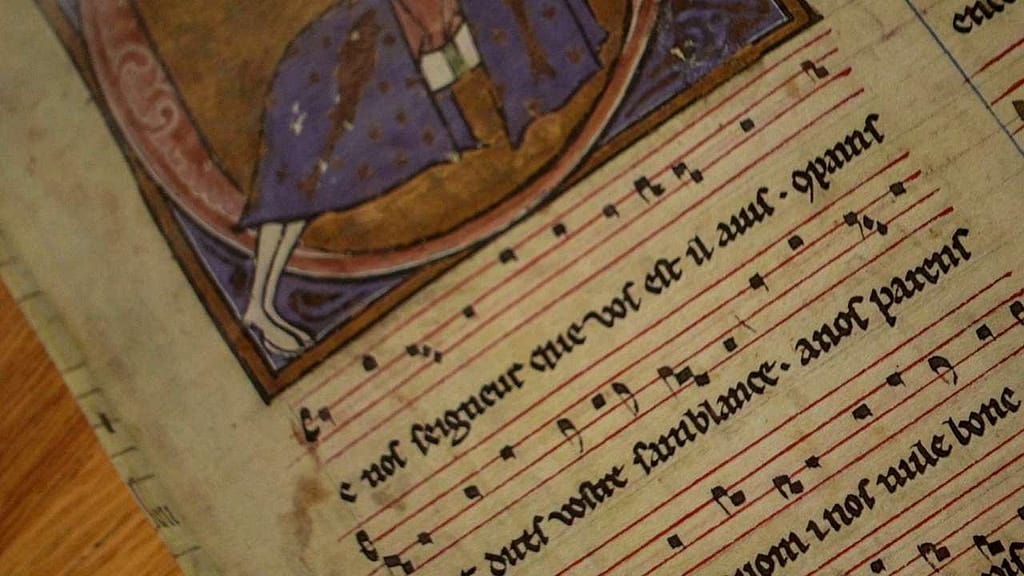 e noſ ſeigneur que voſ eſt il auiſ · ꝯpainſ
t diteſ voſtre ſamblance · anoſ parenſ
uom i noſ nule bone